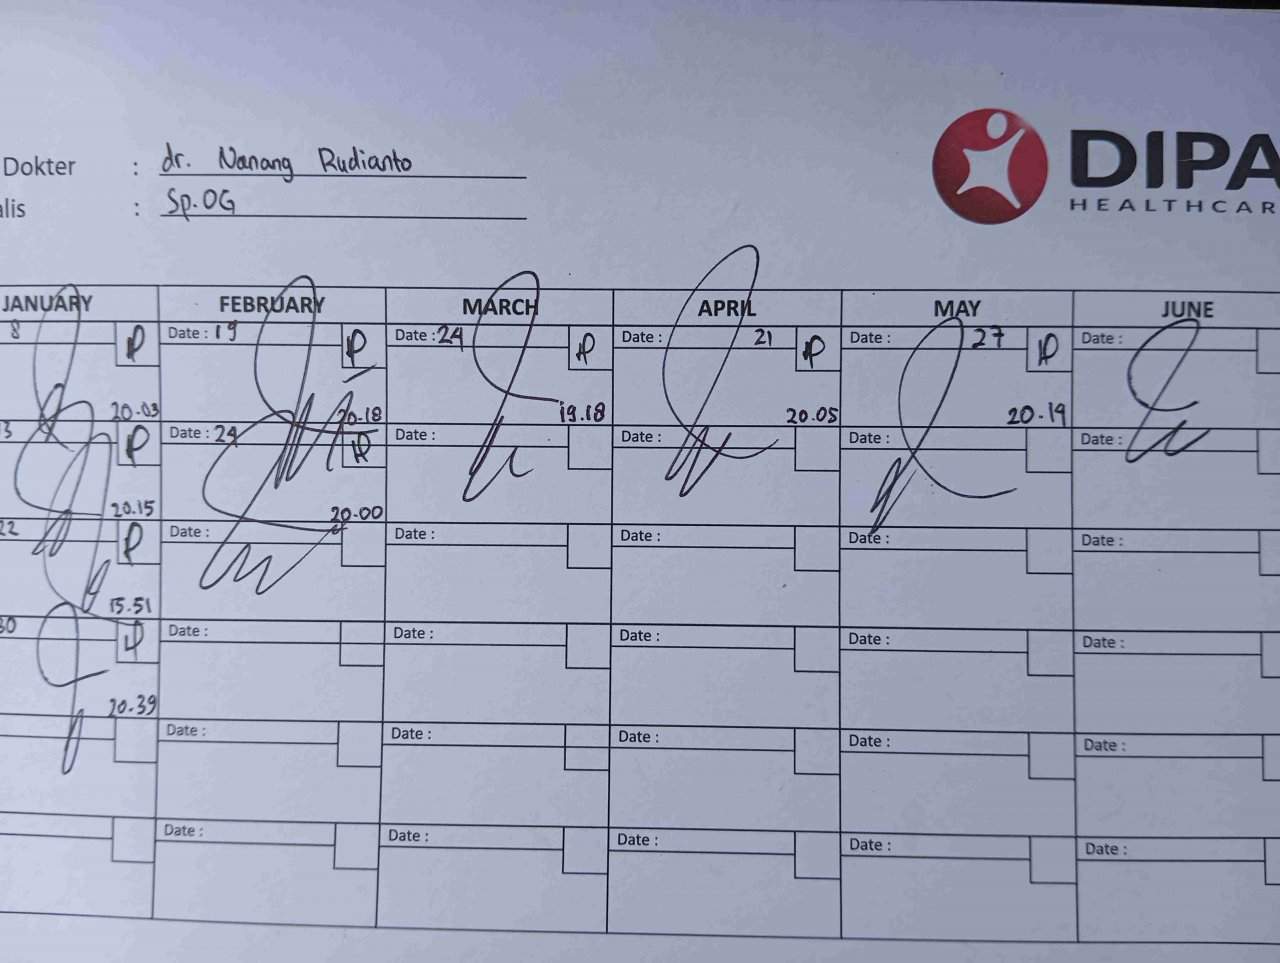 Dokter : dr. Nanang Rudianto
alis : Sp.OG
DIPA
HEALTHCAR
JANUARY FEBRUARY MARCH APRIL MAY JUNE
8 P Date : 19 P Date : 24 P Date : 21 P Date : 27 P Date :
20.03 20.18 19.18 20.05 20.19
3 P Date : 24 P Date : Date : Date : Date :
20.15 20.00
22 P Date : Date : Date : Date : Date :
15.51
30 P Date : Date : Date : Date : Date :
20.39
Date : Date : Date : Date : Date :
Date : Date : Date : Date : Date :